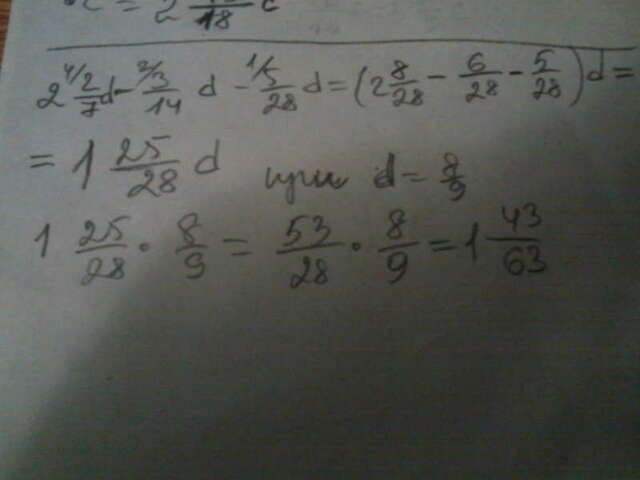 2 18 c
2 4/2/7 d - 2/3/14 d - 1/5/28 d = (2 8/28 - 6/28 - 5/28) d =
= 1 25/28 d при d = 8/9
1 25/28 · 8/9 = 53/28 · 8/9 = 1 43/63